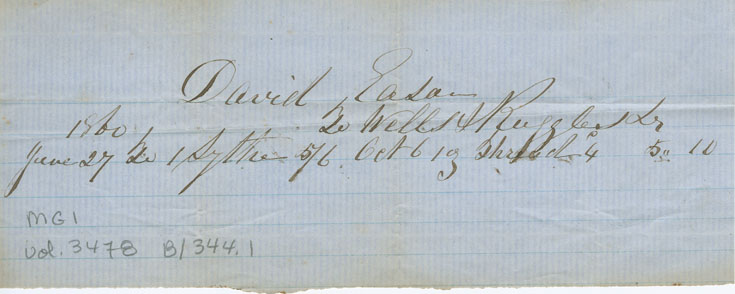 David Eason
1860 To Wells & Ruggles Dr
June 27 To 1 Sythe 5/6 Oct 6 1 oz Thread 4 5" 10
MG1
vol. 3478 B/344.1